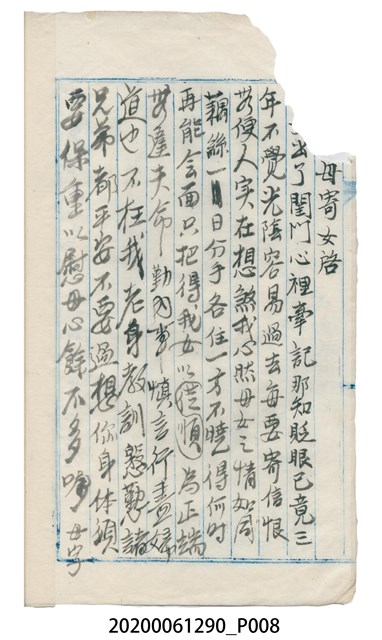 母寄女啓
出了閨門心裡牽記那知貶眼已竟三
年不覺光陰容易過去每要寄信恨
芴便人实在想煞我心然母女之情如同
藕絲一日分手各住一方不曉得何时
再能会面只把得我女以從順為正端
芴違夫命勤内掌慎言行盡婦
道也不枉我老身教訓慇懃諸
兄弟都平安不要過想你身体須
要保重以慰母心餘不多嘀母字
20200061290_P008